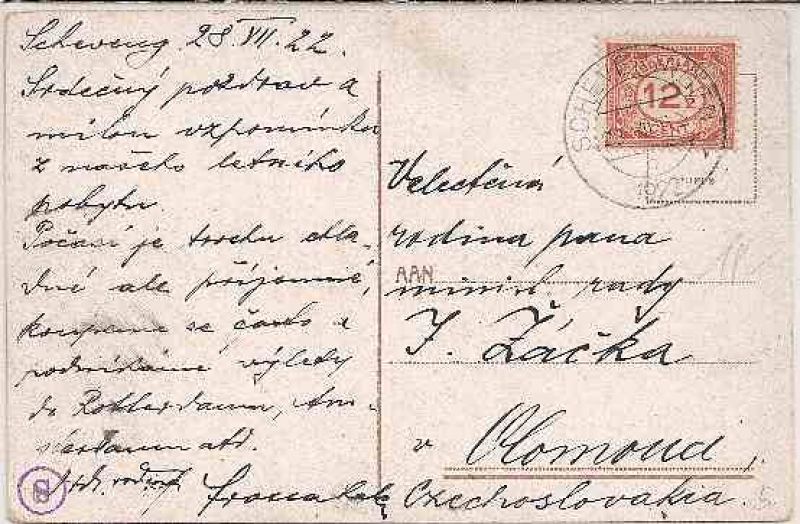 Scheveng 28.VII.22.
Srdečný pozdrav a
milou vzpomínku
z našeho letního
pobytu.
Počasí je trochu chla-
dné ale příjemné,
koupeme se často a
podnikáme výlety
do Rotterdamu, Am-
sterdamu atd.
SCHEVE
12½
CENT
Velectěná
rodina pana
AAN
minist. rady
J. Žáčka
v Olomouci,
Czechoslovakia.